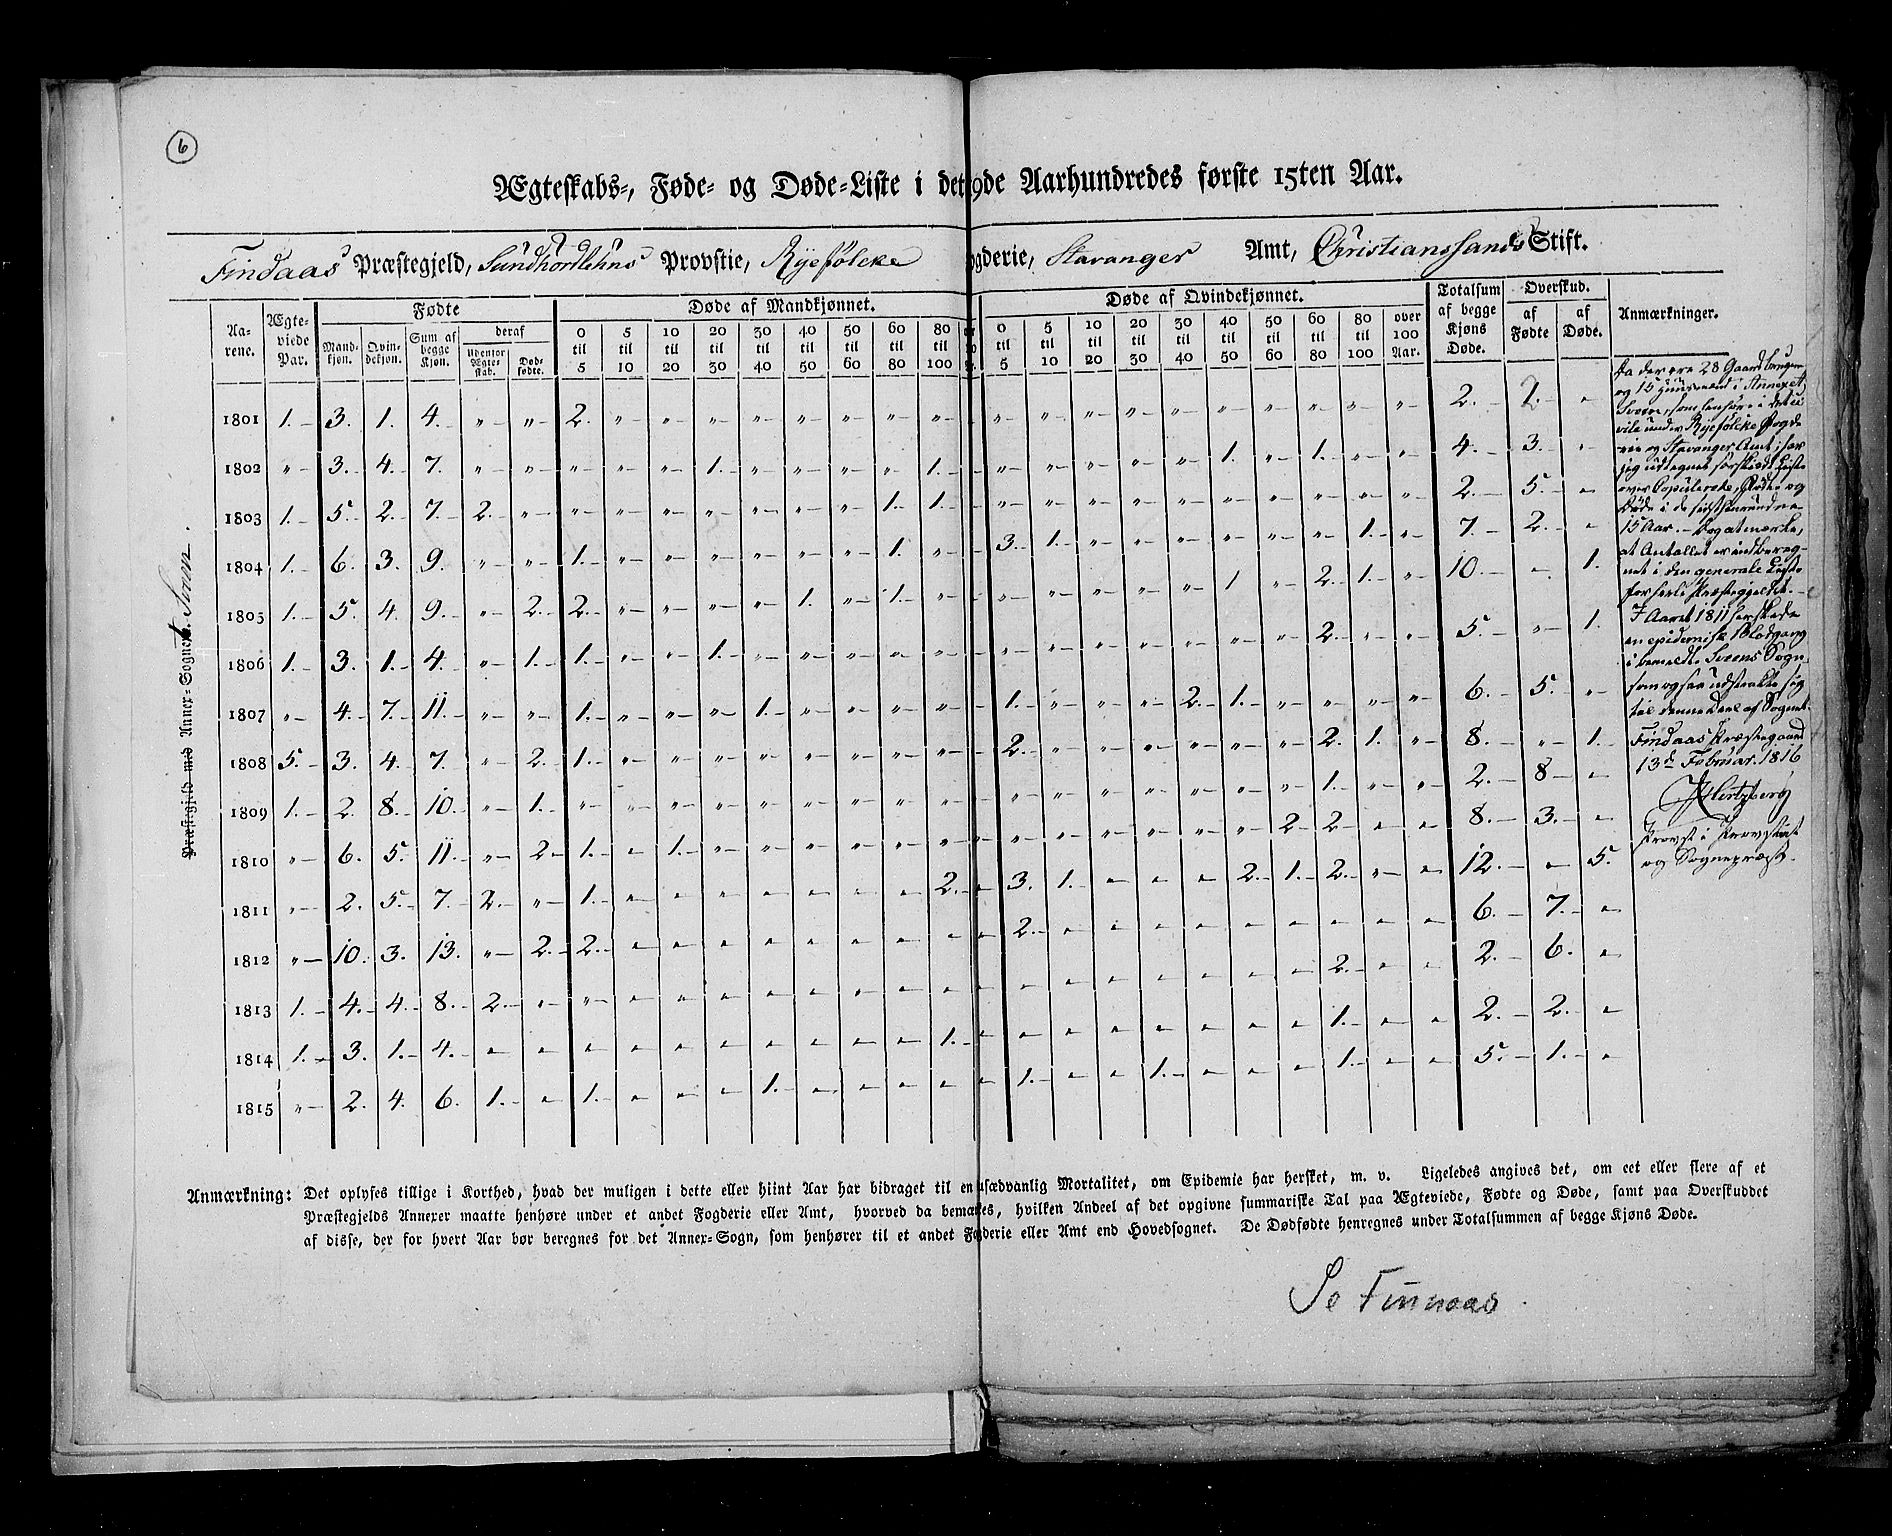 6
Ægteskabs-, Føde- og Døde-Liste i det 19de Aarhundredes første 15ten Aar.
Findaas Præstegjeld, Sundhordlehns Provstie, Ryefølcke ogderie, Stavanger Amt, Christianssands Stift.
Præstegjeld med Annex-Sognene. Sveen.
Aarene. | Ægteviede Par. | Fødte | Døde af Mandkjønnet. | Døde af Qvindekjønnet. | Totalsum af begge Kjøns Døde. | Overskud. | Anmærkninger.
Mandkjøn. | Qvindekjøn. | Sum af begge Kjøn. | deraf Udenfor Ægteskab. | Dødfødte. | 0 til 5 | 5 til 10 | 10 til 20 | 20 til 30 | 30 til 40 | 40 til 50 | 50 til 60 | 60 til 80 | 80 til 100 | 0 til 5 | 5 til 10 | 10 til 20 | 20 til 30 | 30 til 40 | 40 til 50 | 50 til 60 | 60 til 80 | 80 til 100 | over 100 Aar. | af Fødte | af Døde.
1801 1. 3. 1. 4. " " 2. " " " " " " " " " " " " " " " " " " 2. 2 "
1802 " 3. 4. 7. " " " " " 1. " " " " 1. " " " " " 1. " 1. " " 4. 3. "
1803 1. 5. 2. 7. 2. " " " " " " " " 1. 1. " " " " " " " " " " 2. 5. "
1804 1. 6. 3. 9. " " 1. " " " " " " 1. " 3. 1. " " " " " " 1. " 7. 2. "
1805 1. 5. 4. 9. " 2. 2. " " " " 1. " 1. " " " " " " 1 " 2. 1. " 10. " 1.
1806 1. 3. 1. 4. " 1. 1. " " 1. " " " " " " " " " " " " 2. " " 5. " 1.
1807 " 4. 7. 11. " " 1. " " " 1. " " " " 1. " " " 2. 1. " " " " 6. 5. "
1808 5. 3. 4. 7. " 2. 1. " " " " " " " " 2. " " " " " " 2. 1. " 8. " 1.
1809 1. 2. 8. 10. " 1. " " " " " " " " " " " " " " " " 1. " " 2. 8 "
1810 " 6. 5. 11. " 2. 1. " 1. " " " " " " " " " " " " 2 2. " " 8. 3. "
1811 " 2. 5. 7. 2. " 1. " " " " " " " 2. 3. 1. " " " 2. 1. 2. " " 12. " 5.
1812 " 10. 3. 13. " 2. 2. " " " " " " " " 2. " " " " " " " " " 6. 7. "
1813 1. 4. 4. 8. 2. " " " " " " " " " " " " " " " " " 2. " " 2. 6. "
1814 1. 3. 1. 4. " " " " " " " " " " 1. " " " " " " " 1. " " 2. 2. "
1815 " 2. 4. 6. 1. " 1. " " " 1. " " " " 1. " " 1. " " " 1. " " 5. 1. "
Da der ere 28 Gaardbrugere
og 15 Huusmænd i Annexet
Sveen, som henhøre i det civile under Ryefølcke Fogderie og Stavanger Amt, har
jeg udtegnet særskildt Liste
over Copulerede, Fødte og
Døde i de sidst henrundne
15 Aar. – Dog at mærke,
at Antallet er indberegnet i den generale Liste
for hele Præstegjeldet. –
I Aaret 1811 herskede
en epidemisk Blodgang
i bemeldte Sveens Sogn,
som ogsaa udstrakte sig
til denne Deel af Sognet.
Findaas Præstegaard
13de Februar. 1816
Hertzberg
Provst i Provstiet
og Sognepræst.
Anmærkning: Det oplyses tillige i Korthed, hvad der muligen i dette eller hiint Aar har bidraget til en usædvanlig Mortalitet, om Epidemie har hersket, m. v. Ligeledes angives det, om eet eller flere af et
Præstegjelds Annexer maatte henhøre under et andet Fogderie eller Amt, hvorved da bemærkes, hvilken Andeel af det opgivne summariske Tal paa Ægteviede, Fødte og Døde, samt paa Overskuddet
af disse, der for hvert Aar bør beregnes for det Annex-Sogn, som henhører til et andet Fogderie eller Amt end Hovedsognet. De Dødfødte henregnes under Totalsummen af begge Kjøns Døde.
Se Finnaas